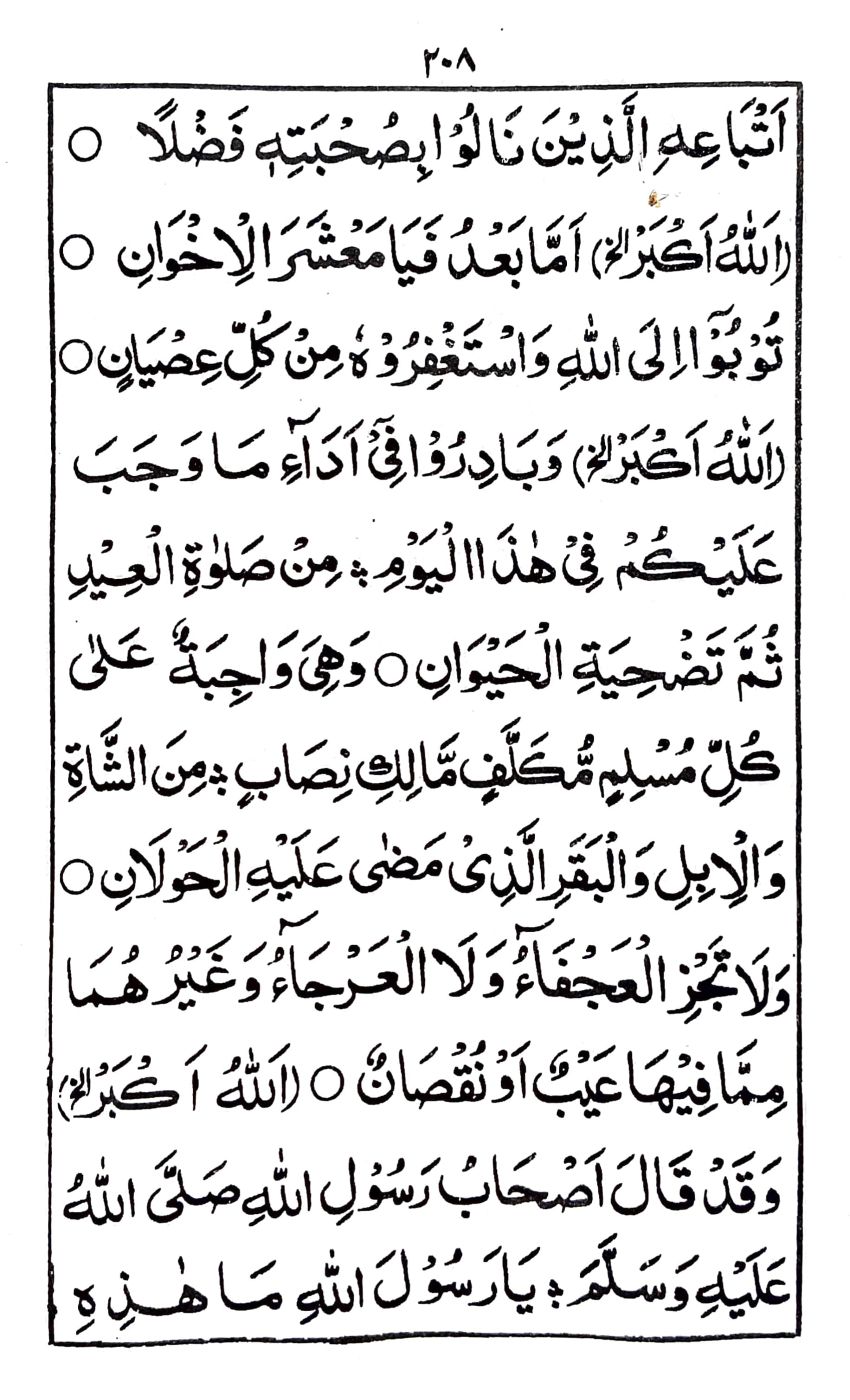 ٢٠٨
اَتْبَاعِهِ الَّذِيْنَ نَالُوْا بِصُحْبَتِهٖ فَضْلًا ○
(اَللّٰهُ اَكْبَرْ الخ) اَمَّا بَعْدُ فَيَا مَعْشَرَ الْاِخْوَانِ ○
تُوْبُوْٓا اِلَى اللّٰهِ وَاسْتَغْفِرُوْهُ مِنْ كُلِّ عِصْيَانٍ ○
(اَللّٰهُ اَكْبَرْ الخ) وَبَادِرُوْا فِىْٓ اَدَآءِ مَا وَجَبَ
عَلَيْكُمْ فِىْ هٰذَا الْيَوْمِ ؞ مِنْ صَلٰوةِ الْعِيْدِ
ثُمَّ تَضْحِيَةِ الْحَيْوَانِ ○ وَهِىَ وَاجِبَةٌ عَلٰى
كُلِّ مُسْلِمٍ مُّكَلَّفٍ مَّالِكِ نِصَابٍ ؞ مِنَ الشَّاةِ
وَالْاِبِلِ وَالْبَقَرِ الَّذِىْ مَضٰى عَلَيْهِ الْحَوْلَانِ ○
وَلَا تَجْزِ الْعَجْفَآءُ وَلَا الْعَرْجَآءُ وَغَيْرُ هُمَا
مِمَّا فِيْهَا عَيْبٌ اَوْ نُقْصَانٌ ○ (اَللّٰهُ اَكْبَرْ الخ)
وَقَدْ قَالَ اَصْحَابُ رَسُوْلِ اللّٰهِ صَلَّى اللّٰهُ
عَلَيْهِ وَسَلَّمَ ؞ يَا رَسُوْلَ اللّٰهِ مَا هٰذِهِ